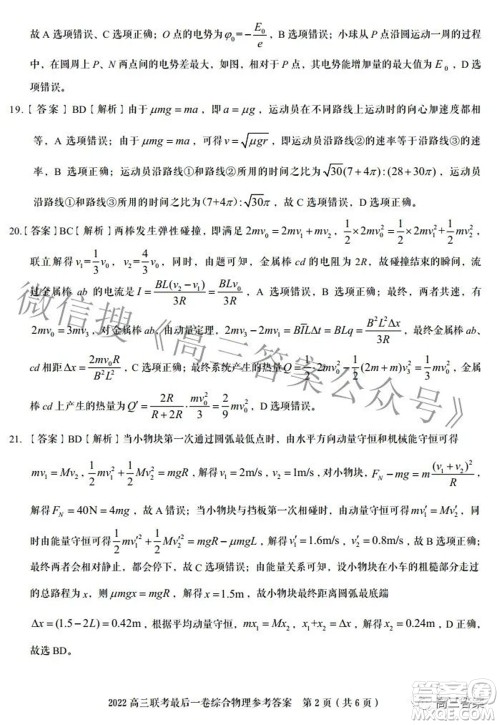 故 A 选项错误、C 选项正确；O 点的电势为 φ₀=-E₀/e，B 选项错误；由于圆周运动一周的过程
中，在圆周上 P、N 两点间的电势差最大，如果该粒子从 P 点释放，其电势能的最大值为 E₀，D 选项正
确。
19.【答案】BD【解析】由于 μmg = ma，即 a = μg，运动员在不同路线上运动时的向心加速度都相
等，A 选项错误；由于 μmg = ma，可得 v = √(μgr)，所以运动员沿路线②的速率等于沿路线③的速
率，B 选项正确；运动员沿路线①和路线②所用的时间之比为 √30(7+4π):(28+30π)，C 选项错误；
运动员沿路线①和路线③所用的时间之比为 √30(7+4π):(28+30π)，D 选项正确。
20.【答案】BC【解析】两棒发生弹性碰撞，即满足 2mv₀ = 2mv₁ + mv₂，1/2×2mv₀² = 1/2×2mv₁² + 1/2 mv₂²，
联立解得 v₁ = 1/3 v₀，v₂ = 4/3 v₀，同时，由于金属棒 cd 的电阻为 2R，故可得碰撞结束的时候，流
过金属棒 ab 的电流是 I = BL(v₂-v₁)/3R = BLv₀/3R，故 A 选项错误、B 选项正确；最终，两者共速，有
2mv₀ = 3mv₃，对金属棒 ab，由动量定理有 2mv₀ - 2mv₁ = BI̅LΔt = BLq = B²L²Δx/3R，故最终，金属棒 ab、
cd 相距 Δx = 2mv₀R/B²L²；最终系统产生的热量 Q = 1/2(2m)v₀² - 1/2(2m+m)v₃² = mv₀²/3，所以，金属
棒 cd 上产生的热量为 Q′ = 2R/(R+2R) · mv₀²/3 = 2/9 mv₀²，故 C 选项正确、D 选项错误。
21.【答案】BD【解析】当小物块第一次通过圆弧最低点时，由水平方向动量守恒和机械能守恒可得
mv₁ = Mv₂，1/2 mv₁² + 1/2 Mv₂² = mgR，解得 v₁ = 2m/s，v₂ = 1m/s，对小物块，F_N - mg = m(v₁+v₂)²/R，
解得 F_N = 40N = 4mg，故 A 选项错误；当小物块与挡板第一次相碰前，由动量守恒可得 mv₁′ = Mv₂′，
由能量守恒可得 1/2 mv₁′² + 1/2 Mv₂′² = mgR - μmgL，解得 v₁′ = 1.6m/s，v₂′ = 0.8m/s，故 B 选项正确；
最终两者会相对静止，且共同速度为零，由能量关系可知，设小物块在小车的粗糙部分走过
的总路程为 x，则有 μmgx = mgR，解得 x = 1.5m，故小物块最终距圆弧轨道底端
Δx = (1.5-2L) = 0.42m，由于水平方向动量守恒，故有 mx₁ = Mx₂，x₁ + x₂ = R + L - Δx，故
选 BD。
2022 高三联考最后一卷综合物理参考答案 第 2 页（共 6 页）
微信搜《高三答案公众号》
高三答案